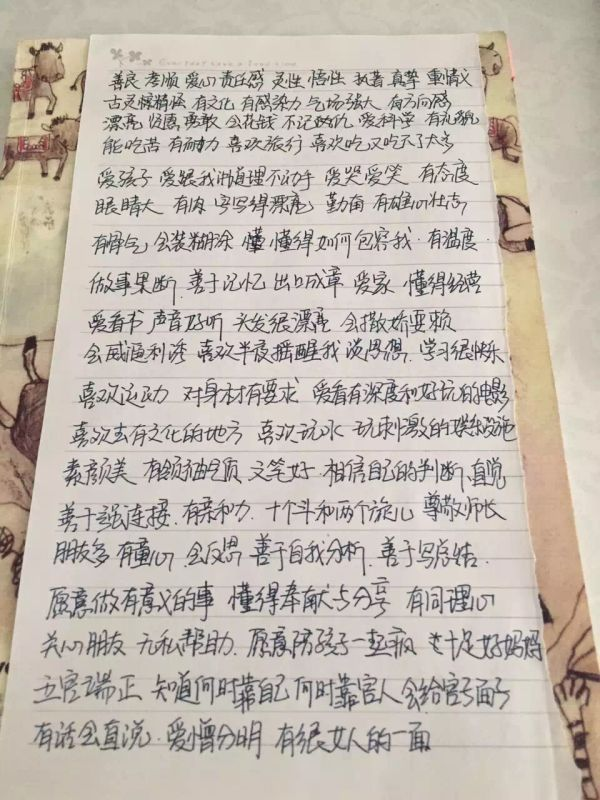 善良 孝顺 爱心 责任感 灵性 悟性 执著 真挚 重情义
古灵精怪 有文化 有感染力 气场强大 有方向感
漂亮 优雅 勇敢 会花钱 不记政仇 爱科学 有礼貌
能吃苦 有耐力 喜欢旅行 喜欢吃又吃不了太多
爱孩子 爱跟我讲道理不动手 爱哭爱笑 有态度
眼睛大 有肉 字写得漂亮 勤奋 有雄心壮志
有骨气 会装糊涂 懂 懂得如何包容我 有温度
做事果断 善于记忆 出口成章 爱家 懂得经营
爱看书 声音好听 头发很漂亮 会撒娇耍赖
会威逼利诱 喜欢半夜摇醒我谈恩得 学习很快乐
喜欢运动 对身材有要求 爱看有深度和好玩的电影
喜欢去有文化的地方 喜欢玩水 玩刺激的娱乐设施
素颜美 有领袖气质 文笔好 相信自己的判断 直觉
善于强连接 有亲和力 十个斗和两个旋儿 尊敬师长
朋友多 有童心 会反思 善于自我分析 善于写总结
愿意做有意义的事 懂得奉献与分享 有同理心
关心朋友 无私帮助 愿意陪孩子一起疯 十足好妈妈
五官端正 知道何时靠自己何时靠客人会给客面子
有话会直说 爱憎分明 有很女人的一面